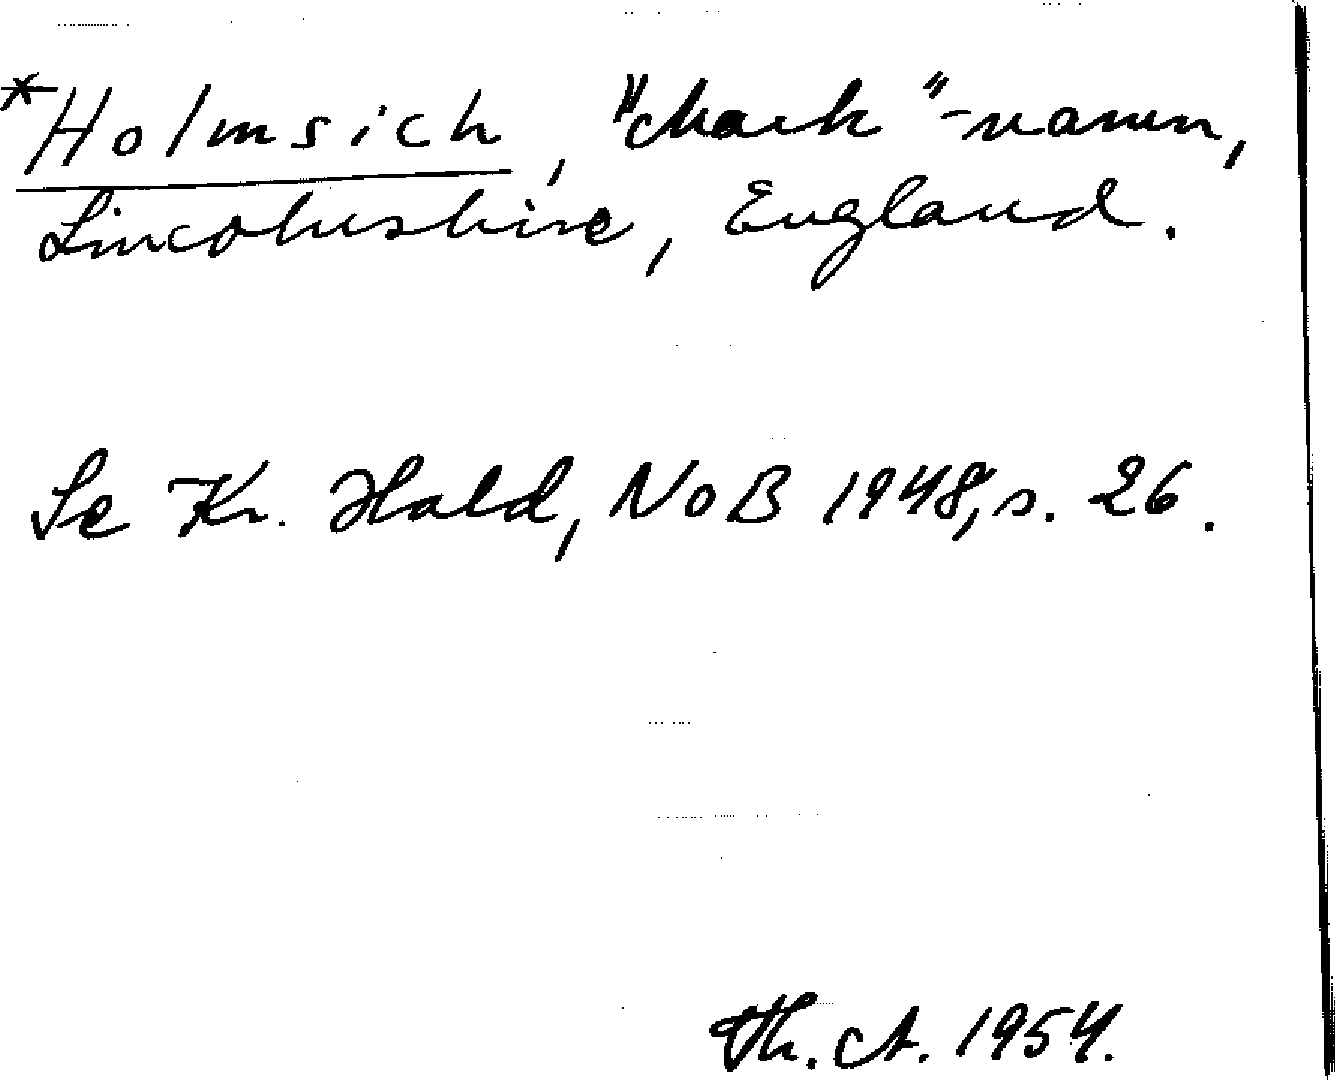 *Holmsich, "Mark"-namn,
Lincolnshire, England.
Se Kr. Hald, NoB 1948, s. 26.
Th. A. 1954.